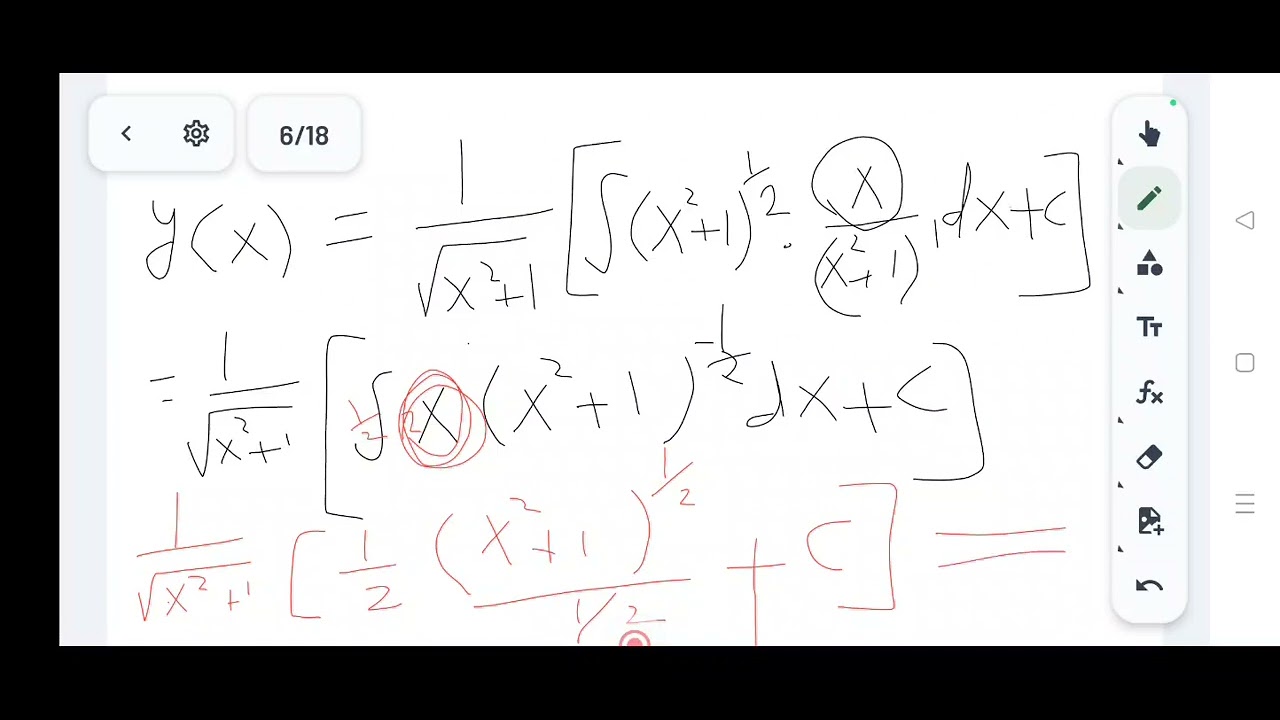 6/18
y(x) = 1/√(x²+1) [∫(x²+1)^1/2 · x/(x²+1) · dx+c]
= 1/√(x²+1) [1/2 ∫ 2x (x²+1)^-1/2 dx+c]
1/√(x²+1) [1/2 (x²+1)^1/2 / 1/2 + c] =
Tт
fx